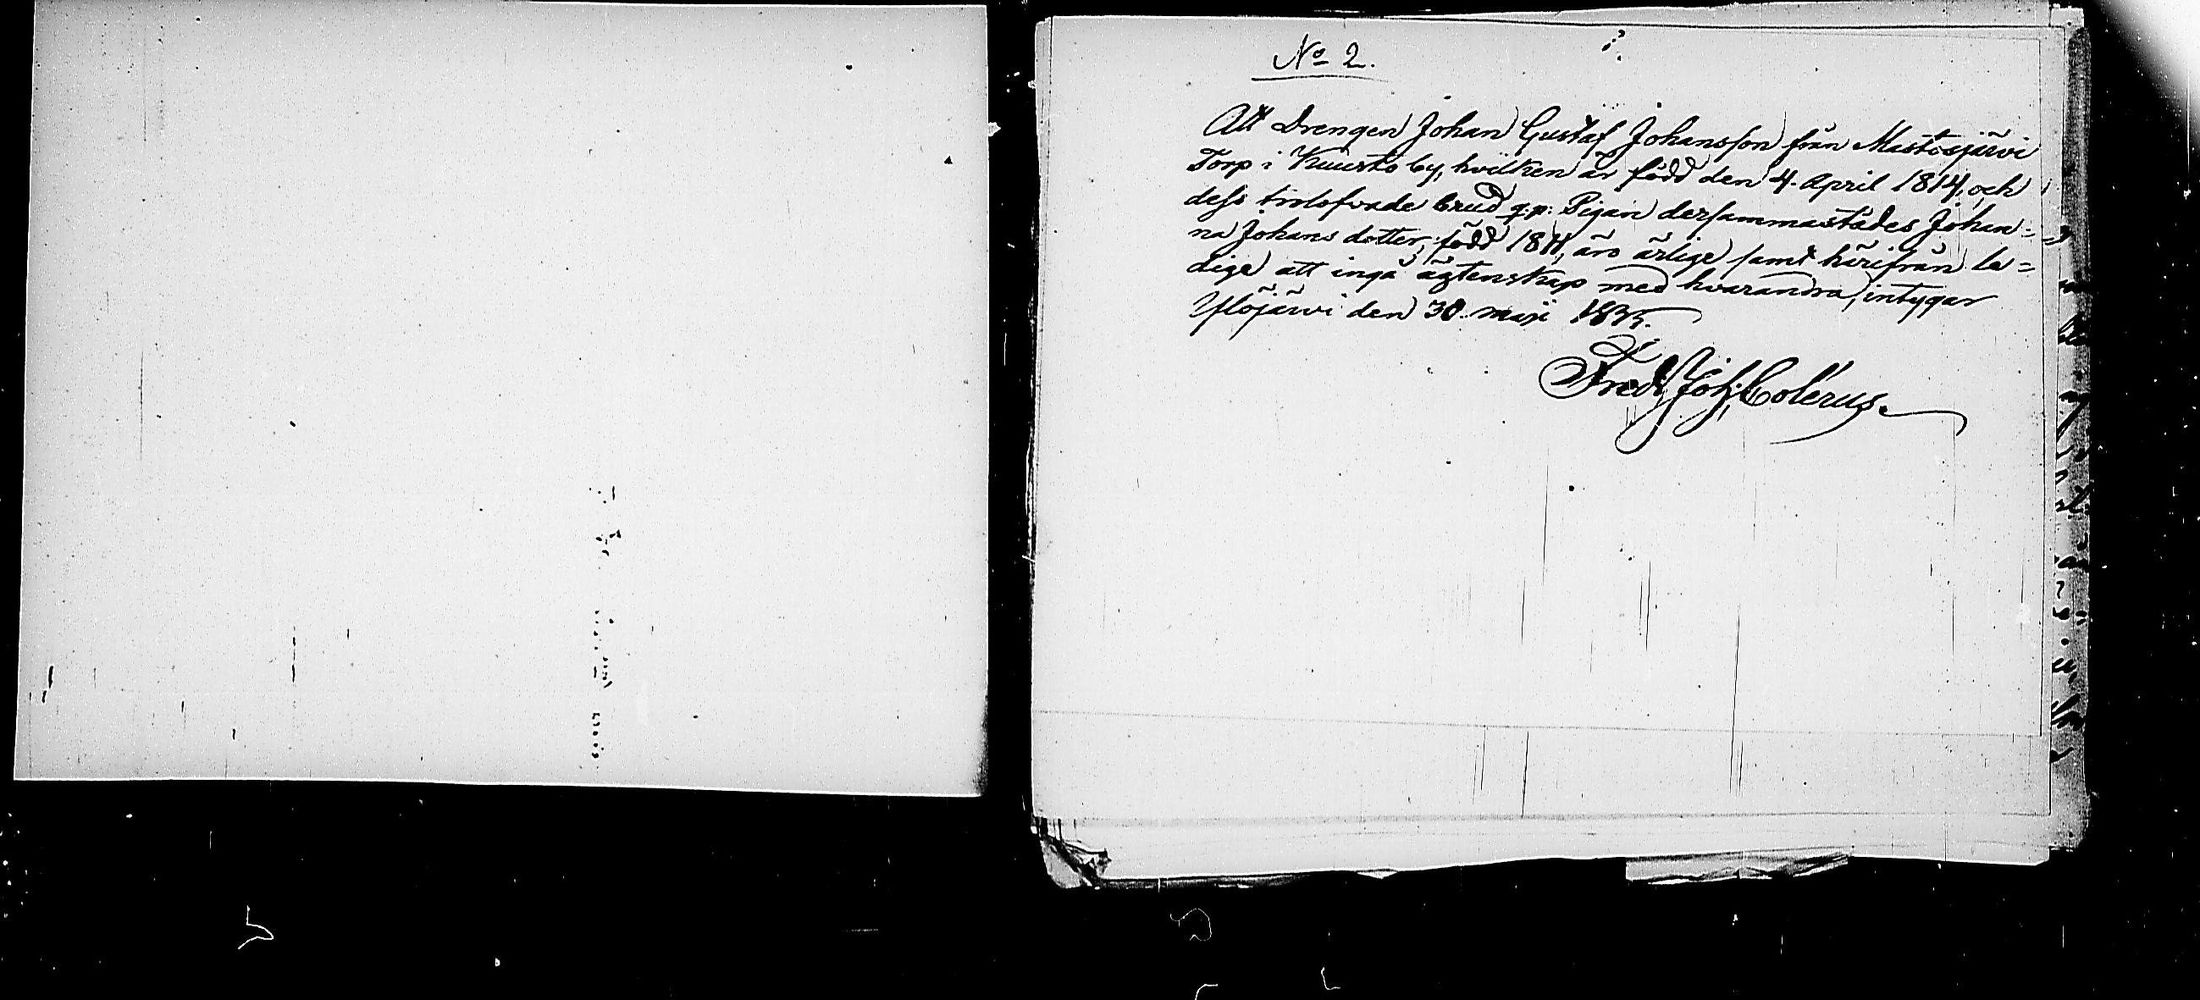 No 2.
Att Drengen Johan Gustaf Johansson från Mastosjärvi
Torp i Kuusto by, hvilken är född den 4. April 1814, och
dess trolofvade brud q.p. Pigan dersammastädes Johan=
na Johans dotter, född 1811, äro ärlige samt härifrån le=
dige att ingå ägtenskap med hvarandra, intygar
Ylöjärvi den 30 maji 1835.
Fredr Joh. Colérus.